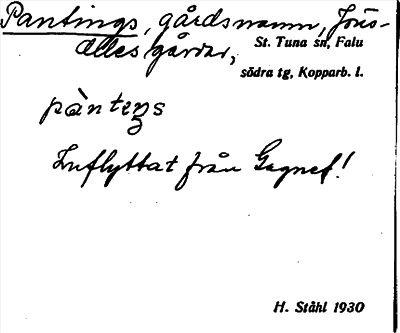 Pantings, gårdsnamn, Jöns-
alles gårdar,
St. Tuna sn, Falu
södra tg, Kopparb. l.
pànteŋs
Inflyttat från Gagnef!
H. Ståhl 1930